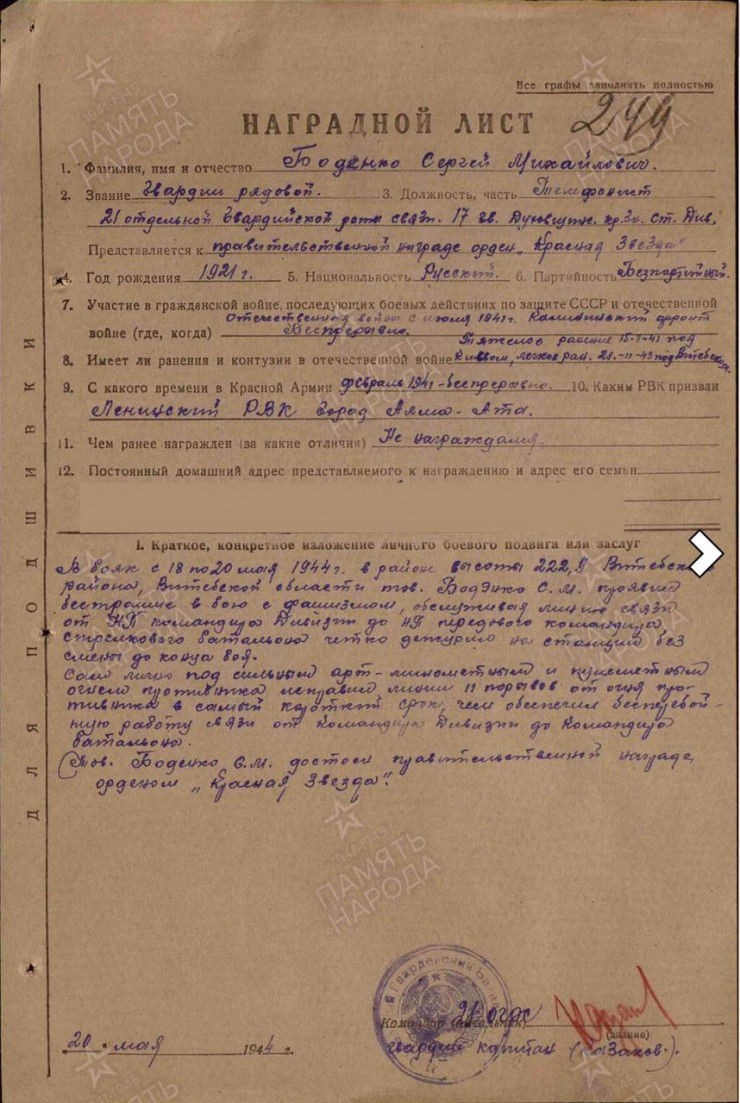 Все графы заполнять полностью
249
НАГРАДНОЙ ЛИСТ
1. Фамилия, имя и отчество Боденко Сергей Михайлович.
2. Звание Гвардии рядовой. 3. Должность, часть Телефонист
21 отдельной Гвардийской роты связи. 17 гв. Духовщин. кр. Зн. Ст. Див.
Представляется к правительственной награде орден „Красная Звезда"
4. Год рождения 1921 г. 5. Национальность Русский. 6. Партийность Безпартийный.
7. Участие в гражданской войне, последующих боевых действиях по защите СССР и отечественной
войне (где, когда) Отечественная война с июля 1941г. Калининский фронт
Беспрерывно.
8. Имеет ли ранения и контузии в отечественной войне Тяжелое ранение 15-7-41 под
Киевом, легкое ран. 21-11-43 под Витебском.
9. С какого времени в Красной Армии февраля 1941-беспрерывно. 10. Каким РВК призван
Ленинский РВК город Алма-Ата.
11. Чем ранее награжден (за какие отличия) Не награждался.
12. Постоянный домашний адрес представляемого к награждению и адрес его семьи
I. Краткое, конкретное изложение личного боевого подвига или заслуг
В боях с 18 по 20 мая 1944 г. в районе высоты 222,9 Витебск
района, Витебской области тов. Боденко С. М. проявил
бестрашие в бою с фашизмом, обслуживая линию связи
от НП командира Дивизии до НП передового командира
стрелкового батальона четко дежурил на станции без
смены до конца боя.
Сам лично под сильным арт-минометным и пулеметным
огнем противника исправил линии 11 порывов от огня про-
тивника в самый короткий срок, чем обеспечил бесперебой-
ную работу связи от командира Дивизии до Командира
батальона.
Тов. Боденко С.М. достоен правительственной награде
орденом „Красная Звезда".
ДЛЯ ПОДШИВКИ
Командир (начальник) 21 огрс
(звание)
гвардии капитан (Казаков).
20. мая 1944 г.
ПАМЯТЬ НАРОДА
1941-1945